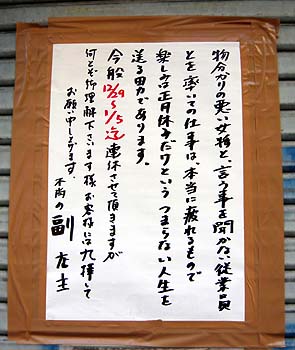 物分かりの悪い女将と、言う事を聞かない従業員
とを率いての仕事は、本当に疲れるもので
楽しみは正月休みだけという つまらない人生を
送る男であります。
今般12/29〜1/5迄 連休させて頂きますが
何とぞ御理解下さいます様 お客様には九拝して
お願い申し上げます。
不肖の副店主